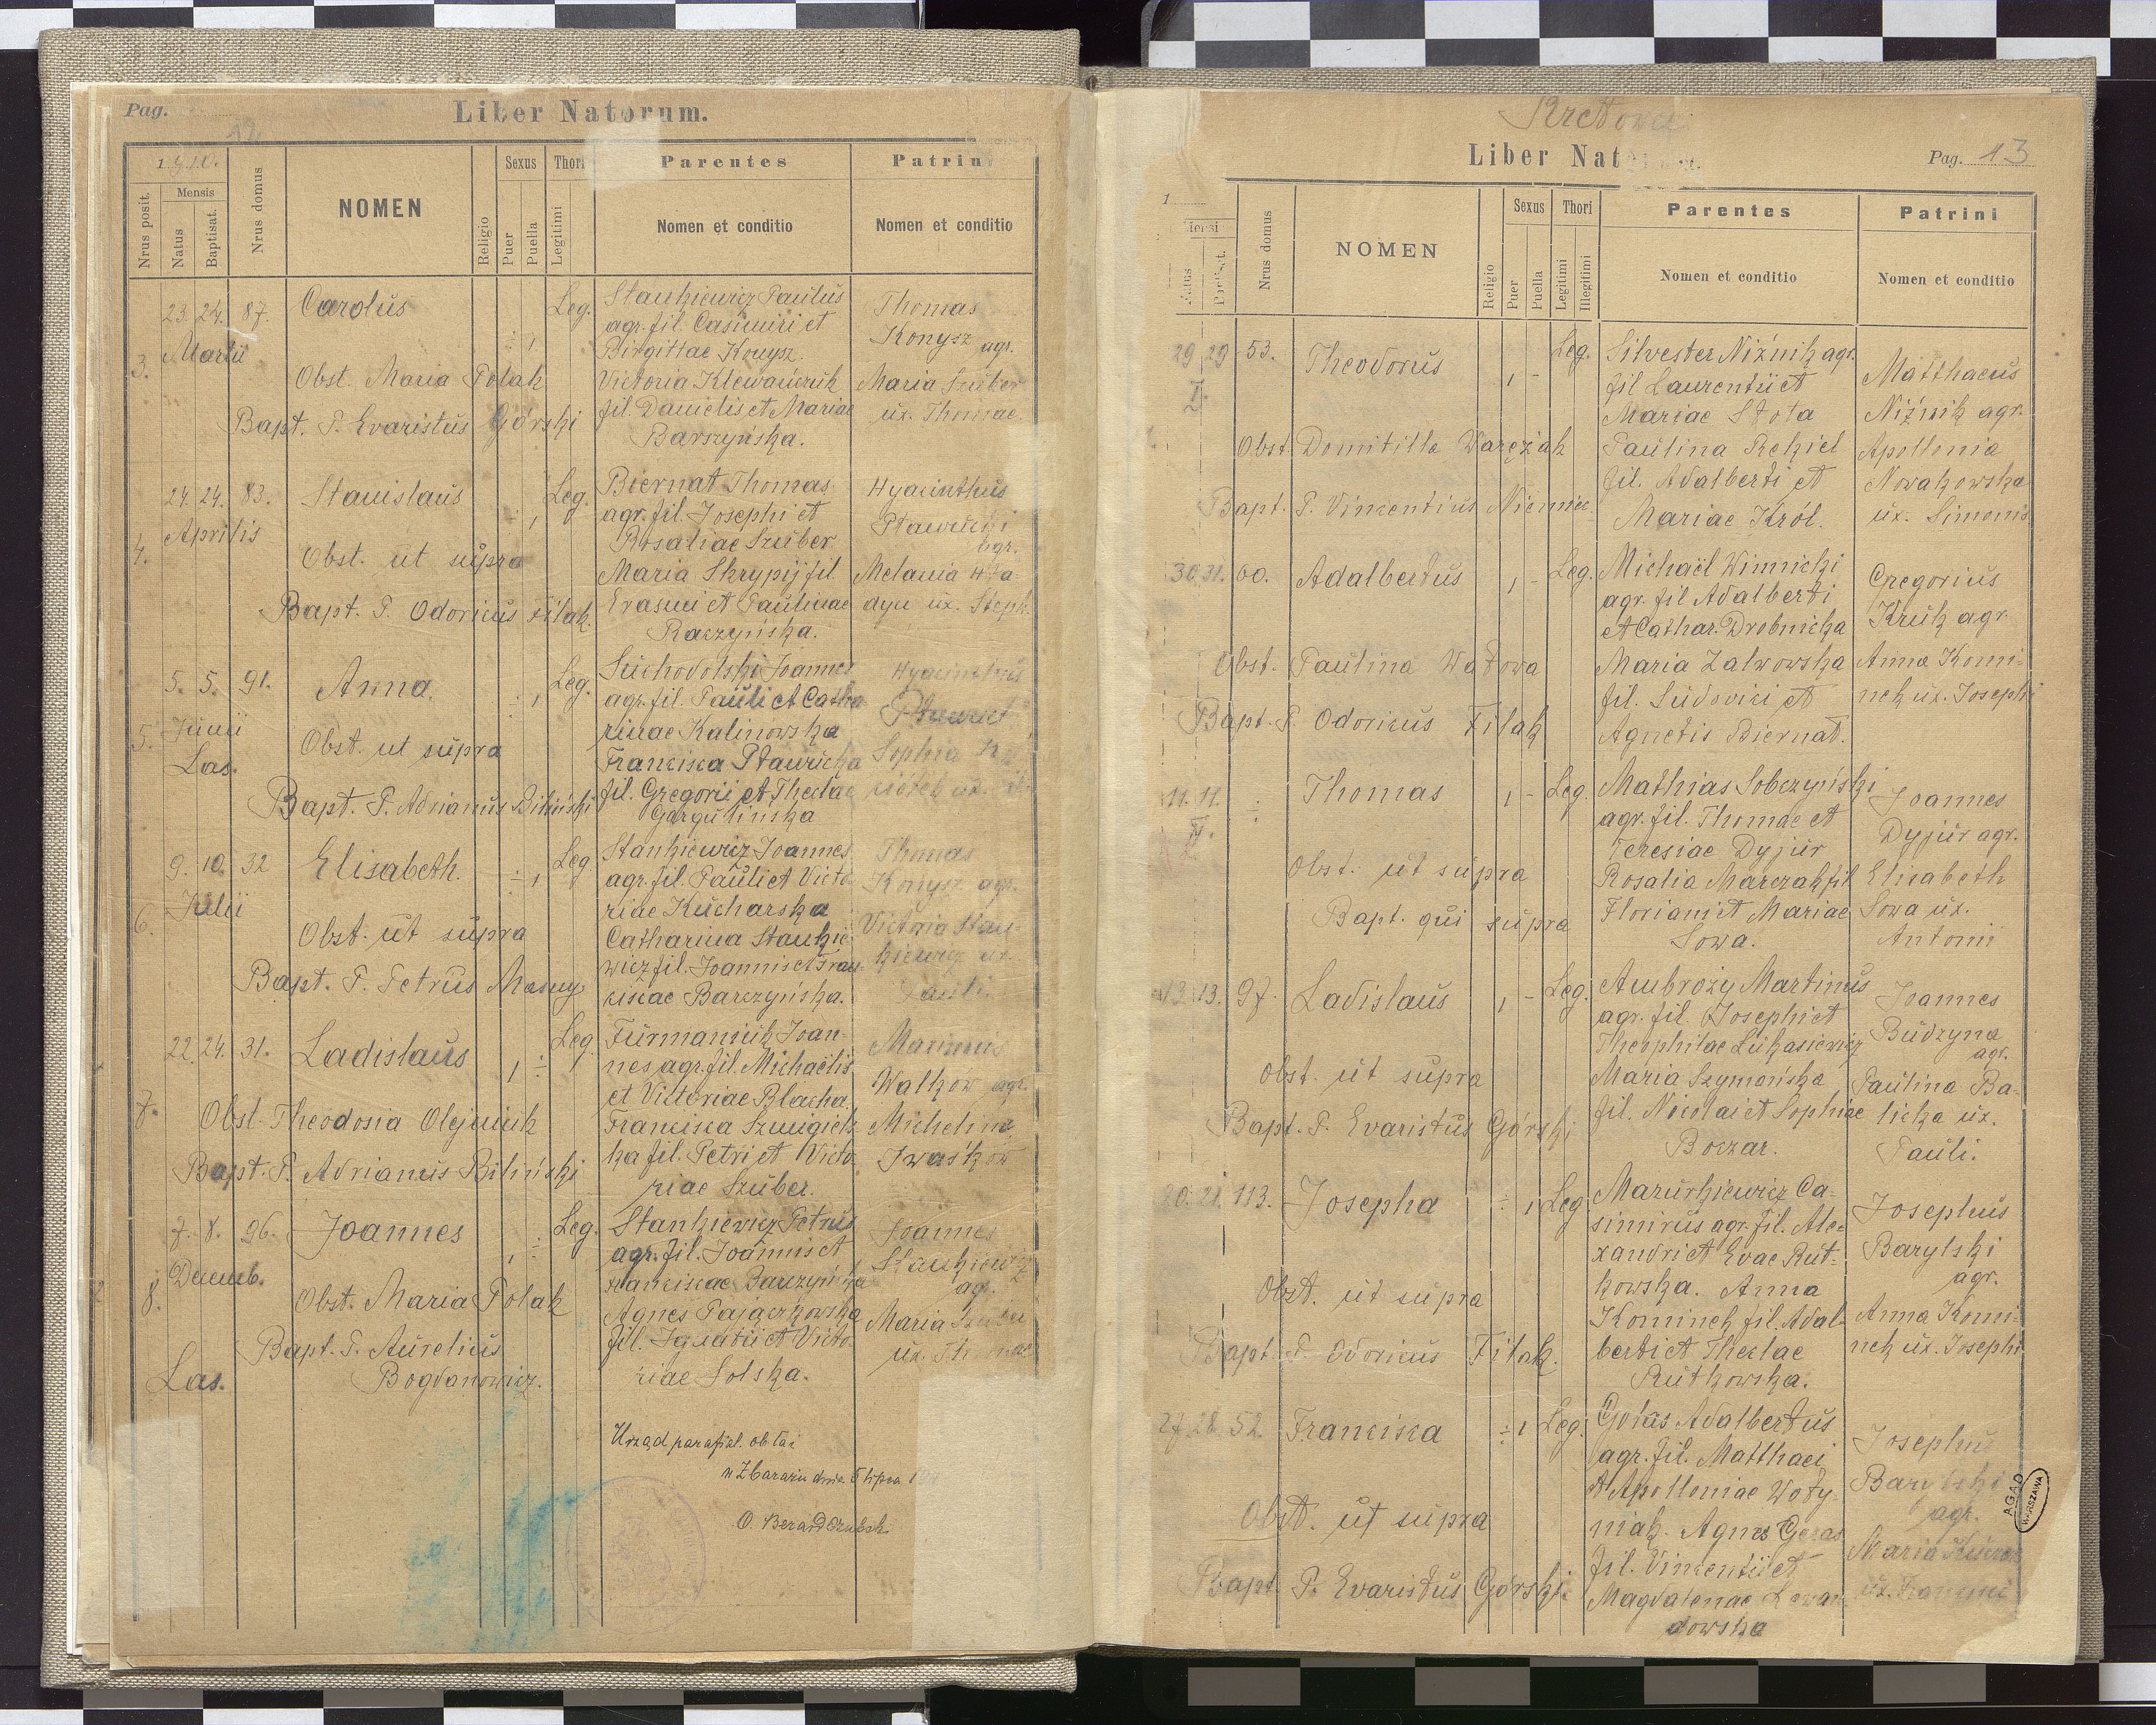 Pag. 12
Liber Natorum.
1910.
Nrus posit.
Mensis
Natus
Baptisat.
Nrus domus
NOMEN
Religio
Sexus
Puer
Puella
Thori
Legitimi
Parentes
Nomen et conditio
Patrini
Nomen et conditio
3.
23. 24. 87.
Martii
Carolus
Leg.
Obst. Maria Polak
Bapt. P. Evaristus Górski
Stankiewicz Paulus
agr. fil. Casimiri et
Birgittae Konysz.
Victoria Klewańczuk
fil. Danielis et Mariae
Barszyńska.
Thomas
Konysz agr.
Maria Szuber
ux. Thomae
4.
24. 24. 83.
Aprilis
Stanislaus
Leg.
Obst. ut supra
Bapt. P. Odoricus Filak.
Biernat Thomas
agr. fil. Josephi et
Rosaliae Szuber
Maria Skrypij fil
Erasmi et Paulinae
Raczyńska.
Hyacinthus
Ptawucki
agr.
Melania
dyn ux. Steph.
5.
5. 5. 91.
Junii
Las.
Anna.
Leg.
Obst. ut supra
Bapt. P. Adrianus Biliński
Suchodolski Joannes
agr. fil. Pauli et Catha
rinae Kalinowska
Francisca Ptawucka
fil. Gregorii et Theclae
Gargulińska
Hyacinthus
Sophia
6.
9. 10. 32
Julii
Elisabeth.
Leg
Obst. ut supra
Bapt. P. Petrus Masny
Stankiewicz Joannes
agr. fil. Pauli et Victo
riae Kucharska
Catharina Stankie
wicz fil. Joannis et Fran
ciscae Barczyńska.
Thomas
Konysz agr.
Victoria Stan-
kiewicz ux.
Pauli.
7.
22. 24. 31.
Ladislaus
Leg
Obst. Theodosia Olejnik
Bapt. P. Adrianus Biliński
Furmaniuk Joan-
nes, agr. fil. Michaëlis
et Victoriae Blacha.
Francisca Szmigiels
ka fil. Petri et Victo
riae Szuber.
Marinus
Walków agr.
Michelina
Iwasków
8.
7. 8. 96.
Decemb.
Las.
Joannes
Leg.
Obst. Maria Polak
Bapt. P. Aurelius
Bogdanowicz.
Stankiewicz Petrus
agr. fil. Joannis et
Franciscae Barczyńska
Agnes Pajączkowska
fil. Ignatii et Victo-
riae Solska.
Joannes
Stankiewicz
agr.
Maria Szuber
ux. Thomae
Urząd parafial. ob łac
w Zbarażu dnia 5 lipca 1
O. Berard
Kretowce
Liber Nat
Pag. 13
1
Mensi
Natus
Baptisat.
Nrus domus
NOMEN
Religio
Sexus
Puer
Puella
Thori
Legitimi
Illegitimi
Parentes
Nomen et conditio
Patrini
Nomen et conditio
29 29 53.
I.
Theodorus
Leg.
Obst. Domitilla Waręziak
Bapt. P. Vincentius Niemiec
Silvester Niźnik agr.
fil Laurentii et
Mariae Stota
Paulina Rekiel
fil. Adalberti et
Mariae Król.
Matthaeus
Niźnik agr.
Apollonia
Nowakowska
ux. Simonis
30 31. 60.
Adalbertus
Leg.
Obst. Paulina Watowa
Bapt. P. Odoricus Filak
Michaël Winnicki
agr. fil Adalberti
et Cathar. Drobnicka
Maria Zalwowska
fil. Ludovici et
Agnetis Biernat.
Gregorius
Kruk agr.
Anna Komi-
nek ux. Josephi
11. 11.
II.
Thomas
Leg.
Obst. ut supra
Bapt. qui supra
Mathias Sobczyński
agr. fil. Thomae et
Teresiae Dyjur
Rosalia Marczak fil
Floriani et Mariae
Sowa.
Joannes
Dyjur agr.
Elisabeth
Sowa ux.
Antonii
13. 13. 97.
Ladislaus
Leg.
Obst. ut supra
Bapt. P. Evaristus Górski
Ambroży Martinus
agr. fil. Josephi et
Theophilae Łukasiewicz
Maria Szymańska
fil. Nicolai et Sophiae
Boczar.
Joannes
Budzyna
agr.
Paulina Ba-
licka ux.
Pauli.
20. 21. 113.
Josepha
Leg
Obst. ut supra
Bapt. P. Odoricus Filak.
Mazurkiewicz Ca-
simirus agr. fil. Ale-
xandri et Evae Rut-
kowska. Anna
Kominek fil. Adal-
berti et Theclae
Rutkowska.
Josephus
Barylski
agr.
Anna Komi-
nek ux. Josephi
27. 28. 52.
Francisca
Leg.
Obst. ut supra
Bapt. P. Evaristus Górski.
Gołas Adalbertus
agr. fil. Matthaei
et Apolloniae Woły-
niak. Agnes Geras
fil. Vincentii et
Magdalenae Lewan
dowska
Josephus
Barylski
agr.
Maria
A.G.A.D
WARSZAWA